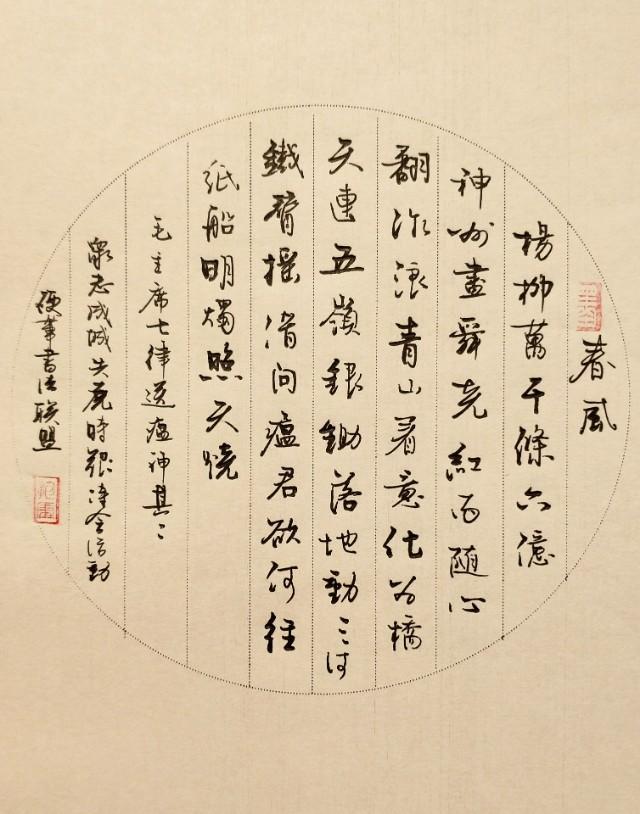 春風
楊柳萬千條六億
神州盡舜堯紅雨隨心
翻作浪青山着意化為橋
天連五嶺銀鋤落地動三河
鐵臂搖借問瘟君欲何往
紙船明燭照天燒
毛主席七律送瘟神其二
衆志成城共克時艱
硬筆書法聯盟